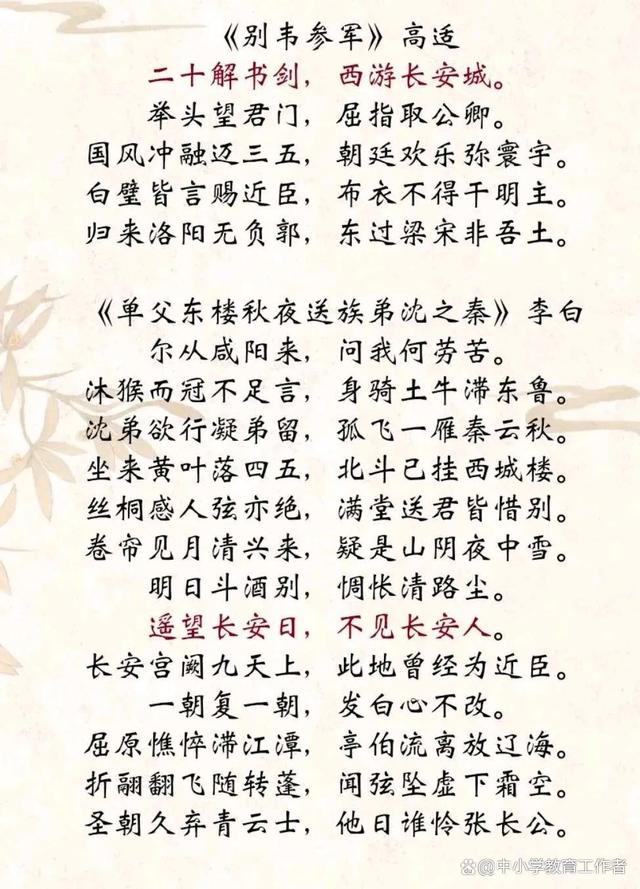 《别韦参军》高适
二十解书剑，西游长安城。
举头望君门，屈指取公卿。
国风冲融迈三五，朝廷欢乐弥寰宇。
白璧皆言赐近臣，布衣不得干明主。
归来洛阳无负郭，东过梁宋非吾土。
《单父东楼秋夜送族弟沈之秦》李白
尔从咸阳来，问我何劳苦。
沐猴而冠不足言，身骑土牛滞东鲁。
沈弟欲行凝弟留，孤飞一雁秦云秋。
坐来黄叶落四五，北斗已挂西城楼。
丝桐感人弦亦绝，满堂送君皆惜别。
卷帘见月清兴来，疑是山阴夜中雪。
明日斗酒别，惆怅清路尘。
遥望长安日，不见长安人。
长安宫阙九天上，此地曾经为近臣。
一朝复一朝，发白心不改。
屈原憔悴滞江潭，亭伯流离放辽海。
折翮翻飞随转蓬，闻弦坠虚下霜空。
圣朝久弃青云士，他日谁怜张长公。
中小学教育工作者